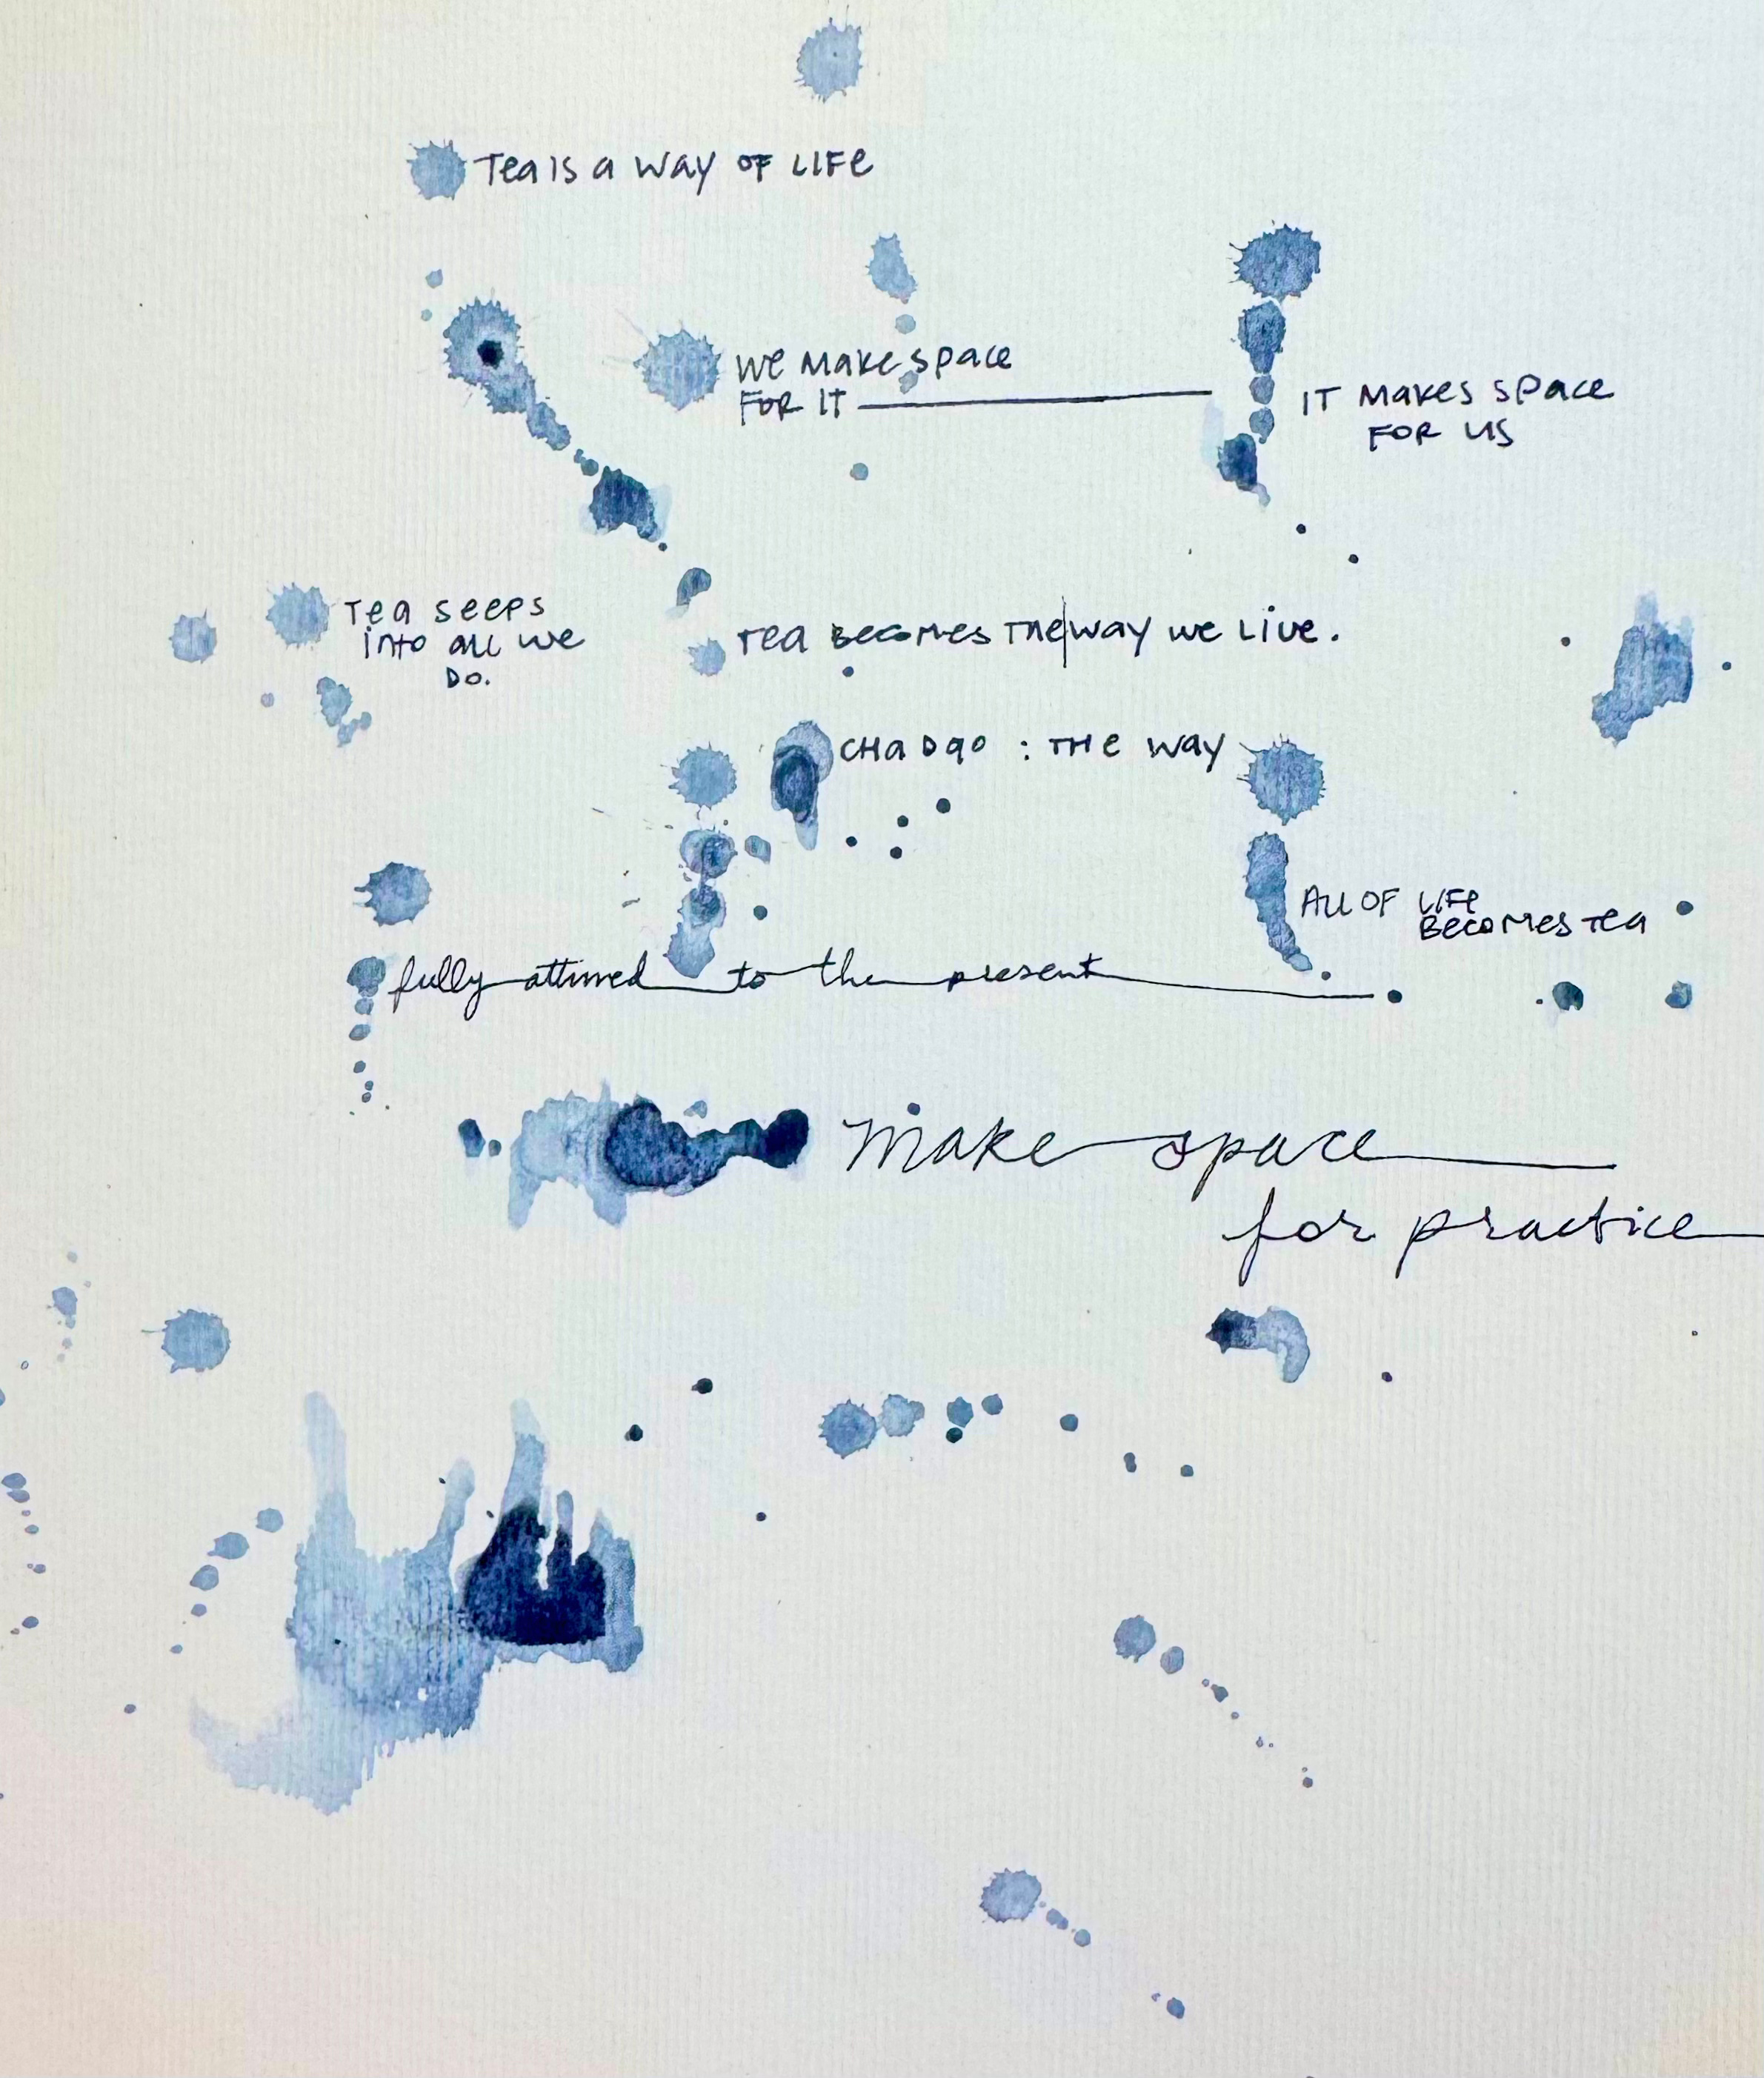 Tea is a way of life
We make space
for it
it makes space
for us
Tea seeps
into all we
do.
Tea becomes the|way we live.
Chadao : the way
All of life
becomes tea
fully attuned to the present
make space
for practice